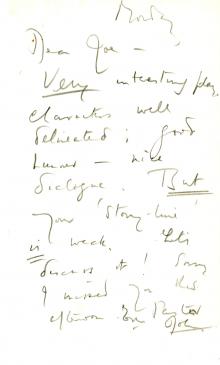 Monday
Dear Joe —
Very interesting play,
characters well
delineated; good
humor — nice
dialogue. But
your 'Story-line'
is weak. Let's
discuss it! Sorry
I missed you this
afternoon.
John